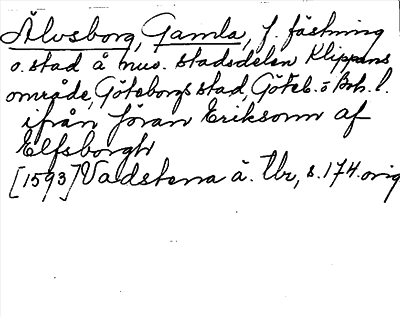 Älvsborg, Gamla, f. fästning
o. stad å nuv. stadsdelen Klippans
område, Göteborgs stad, Göteb. o. Boh. l.
ifrån Jöran Eriksonn af
Elfsborgh
[1593] Vadstena ä. tbr, s. 174. orig